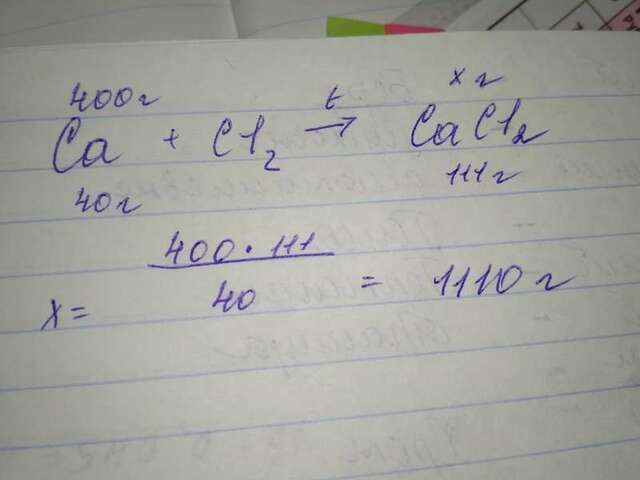 400г t x г
Ca + Cl2 → CaCl2
40г 111г
x = 400 · 111 / 40 = 1110 г